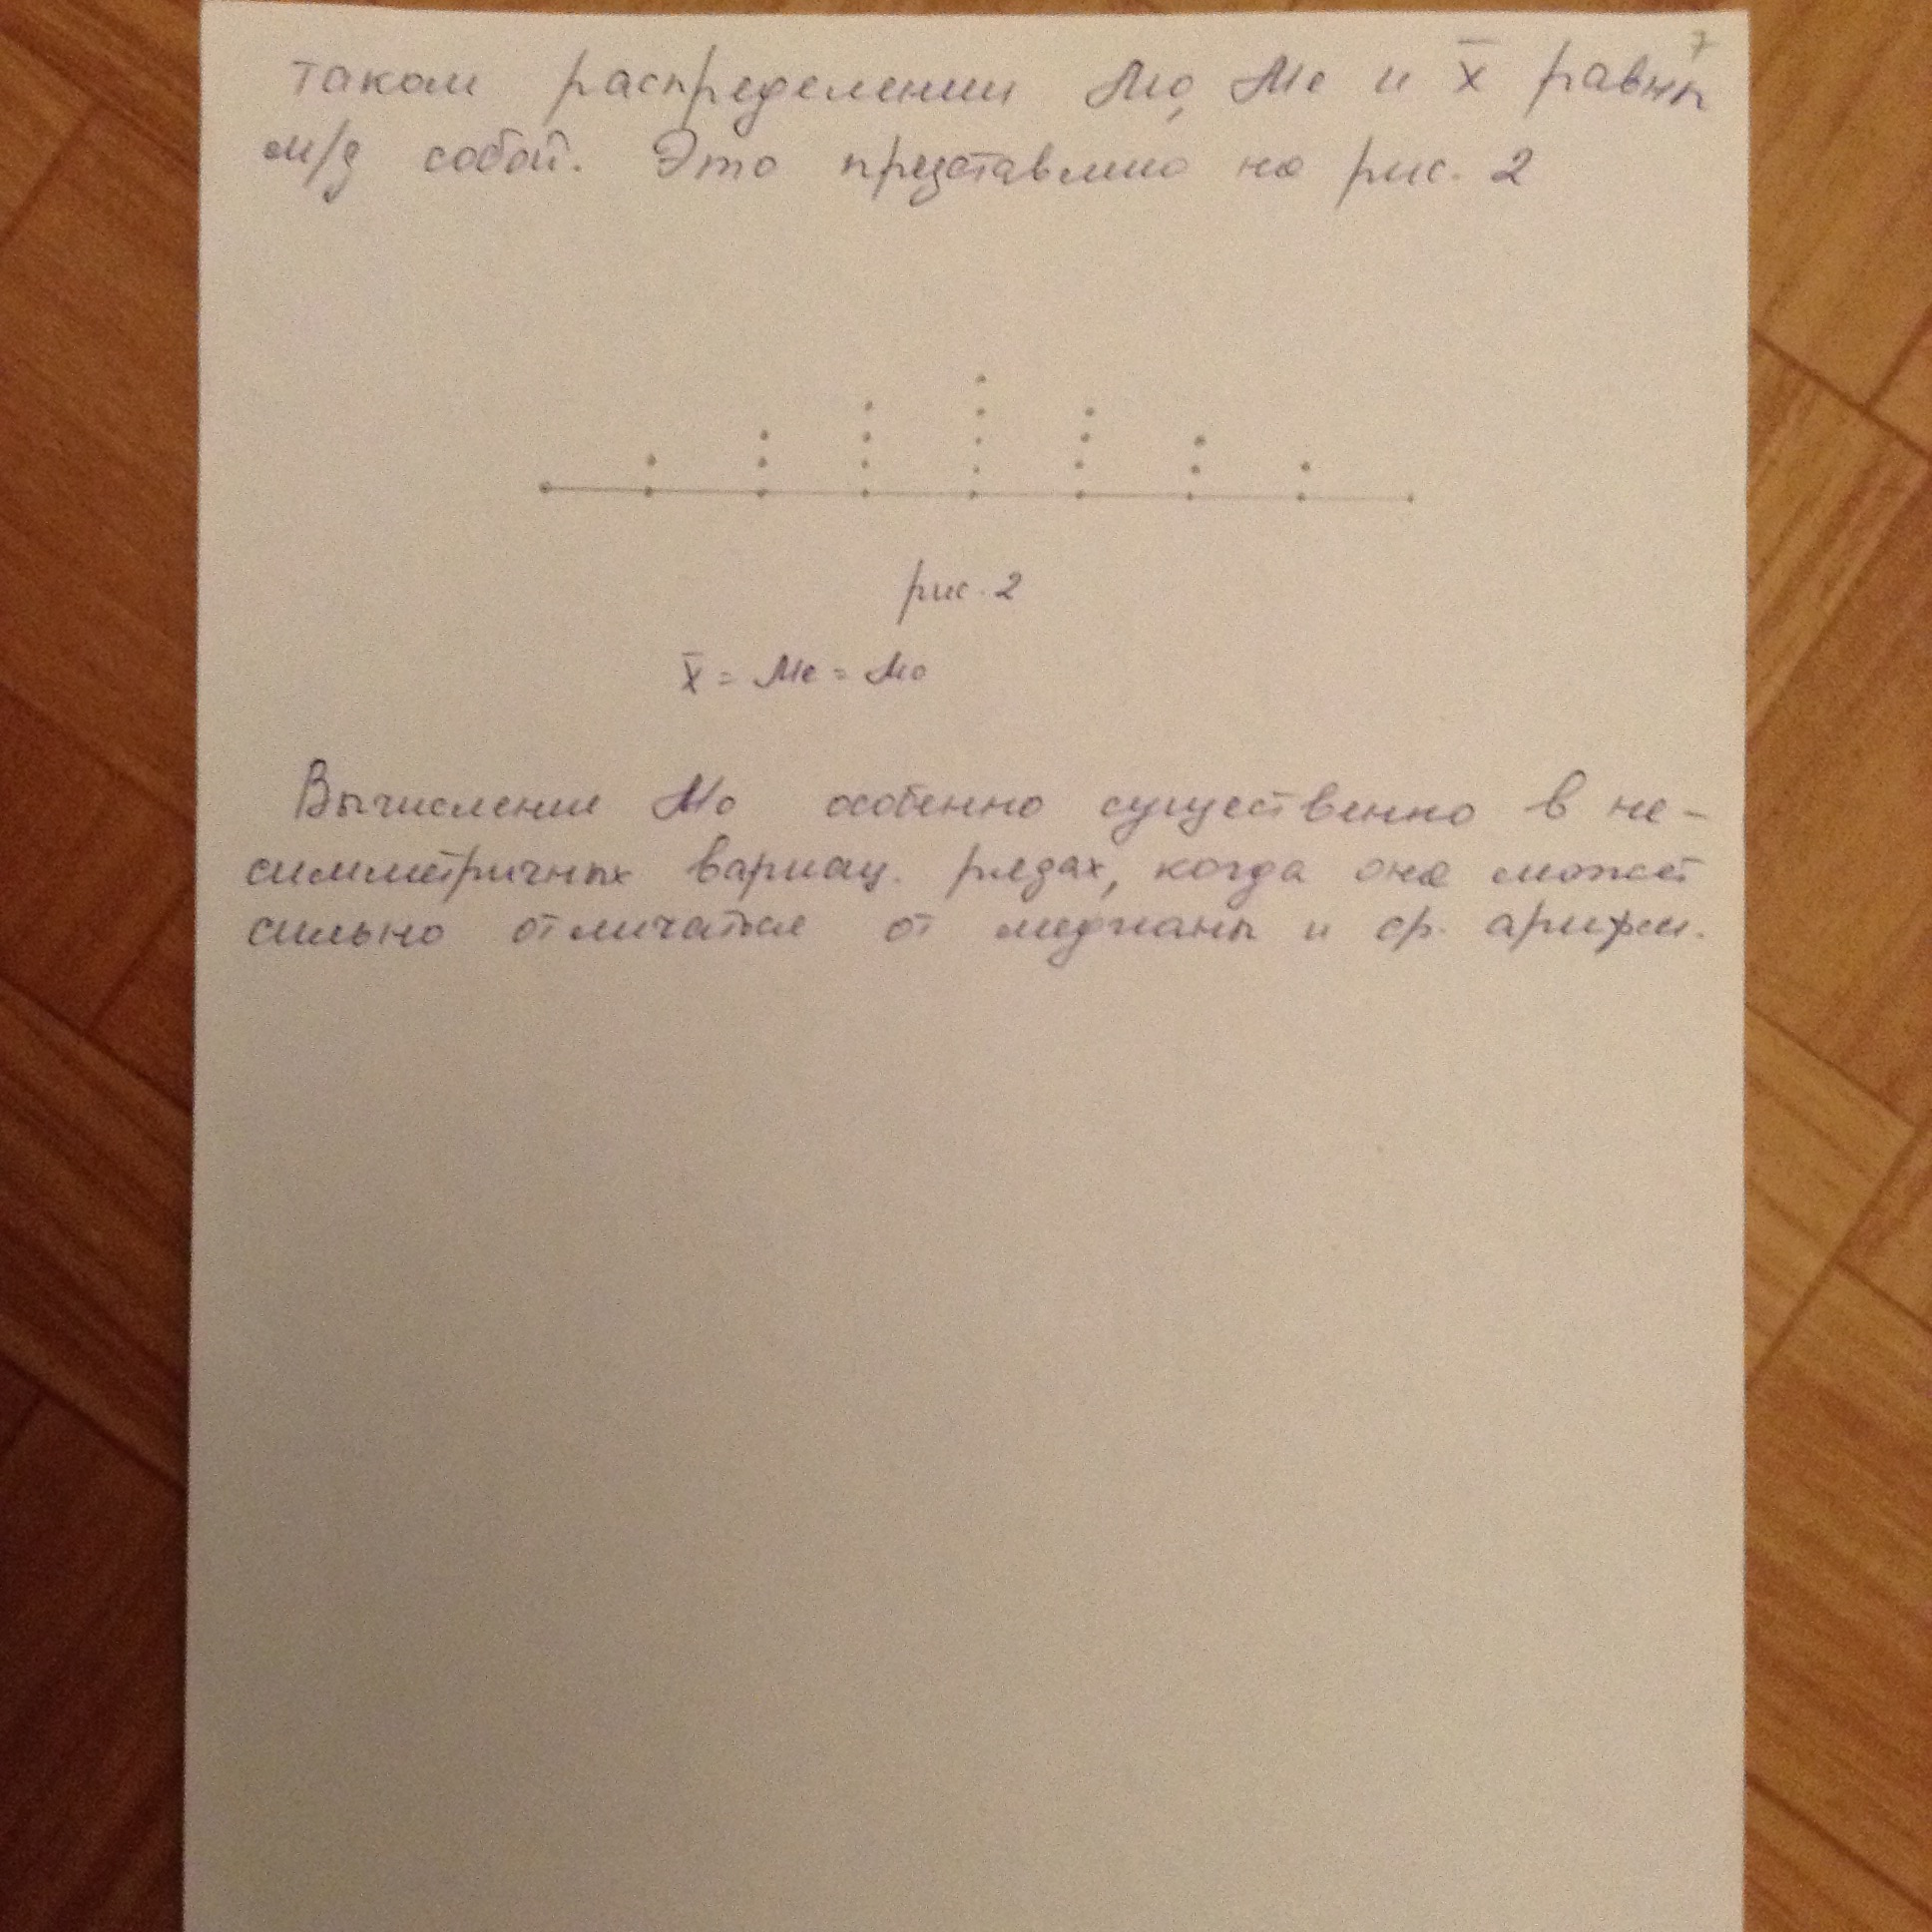 7
таком распределении Мо, Ме и x̄ равны
м/д собой. Это представлено на рис. 2
рис. 2
x̄ = Ме = Мо
Вычисление Мо особенно существенно в не-
симметричных вариац. рядах, когда она может
сильно отличаться от медианы и ср. арифм.